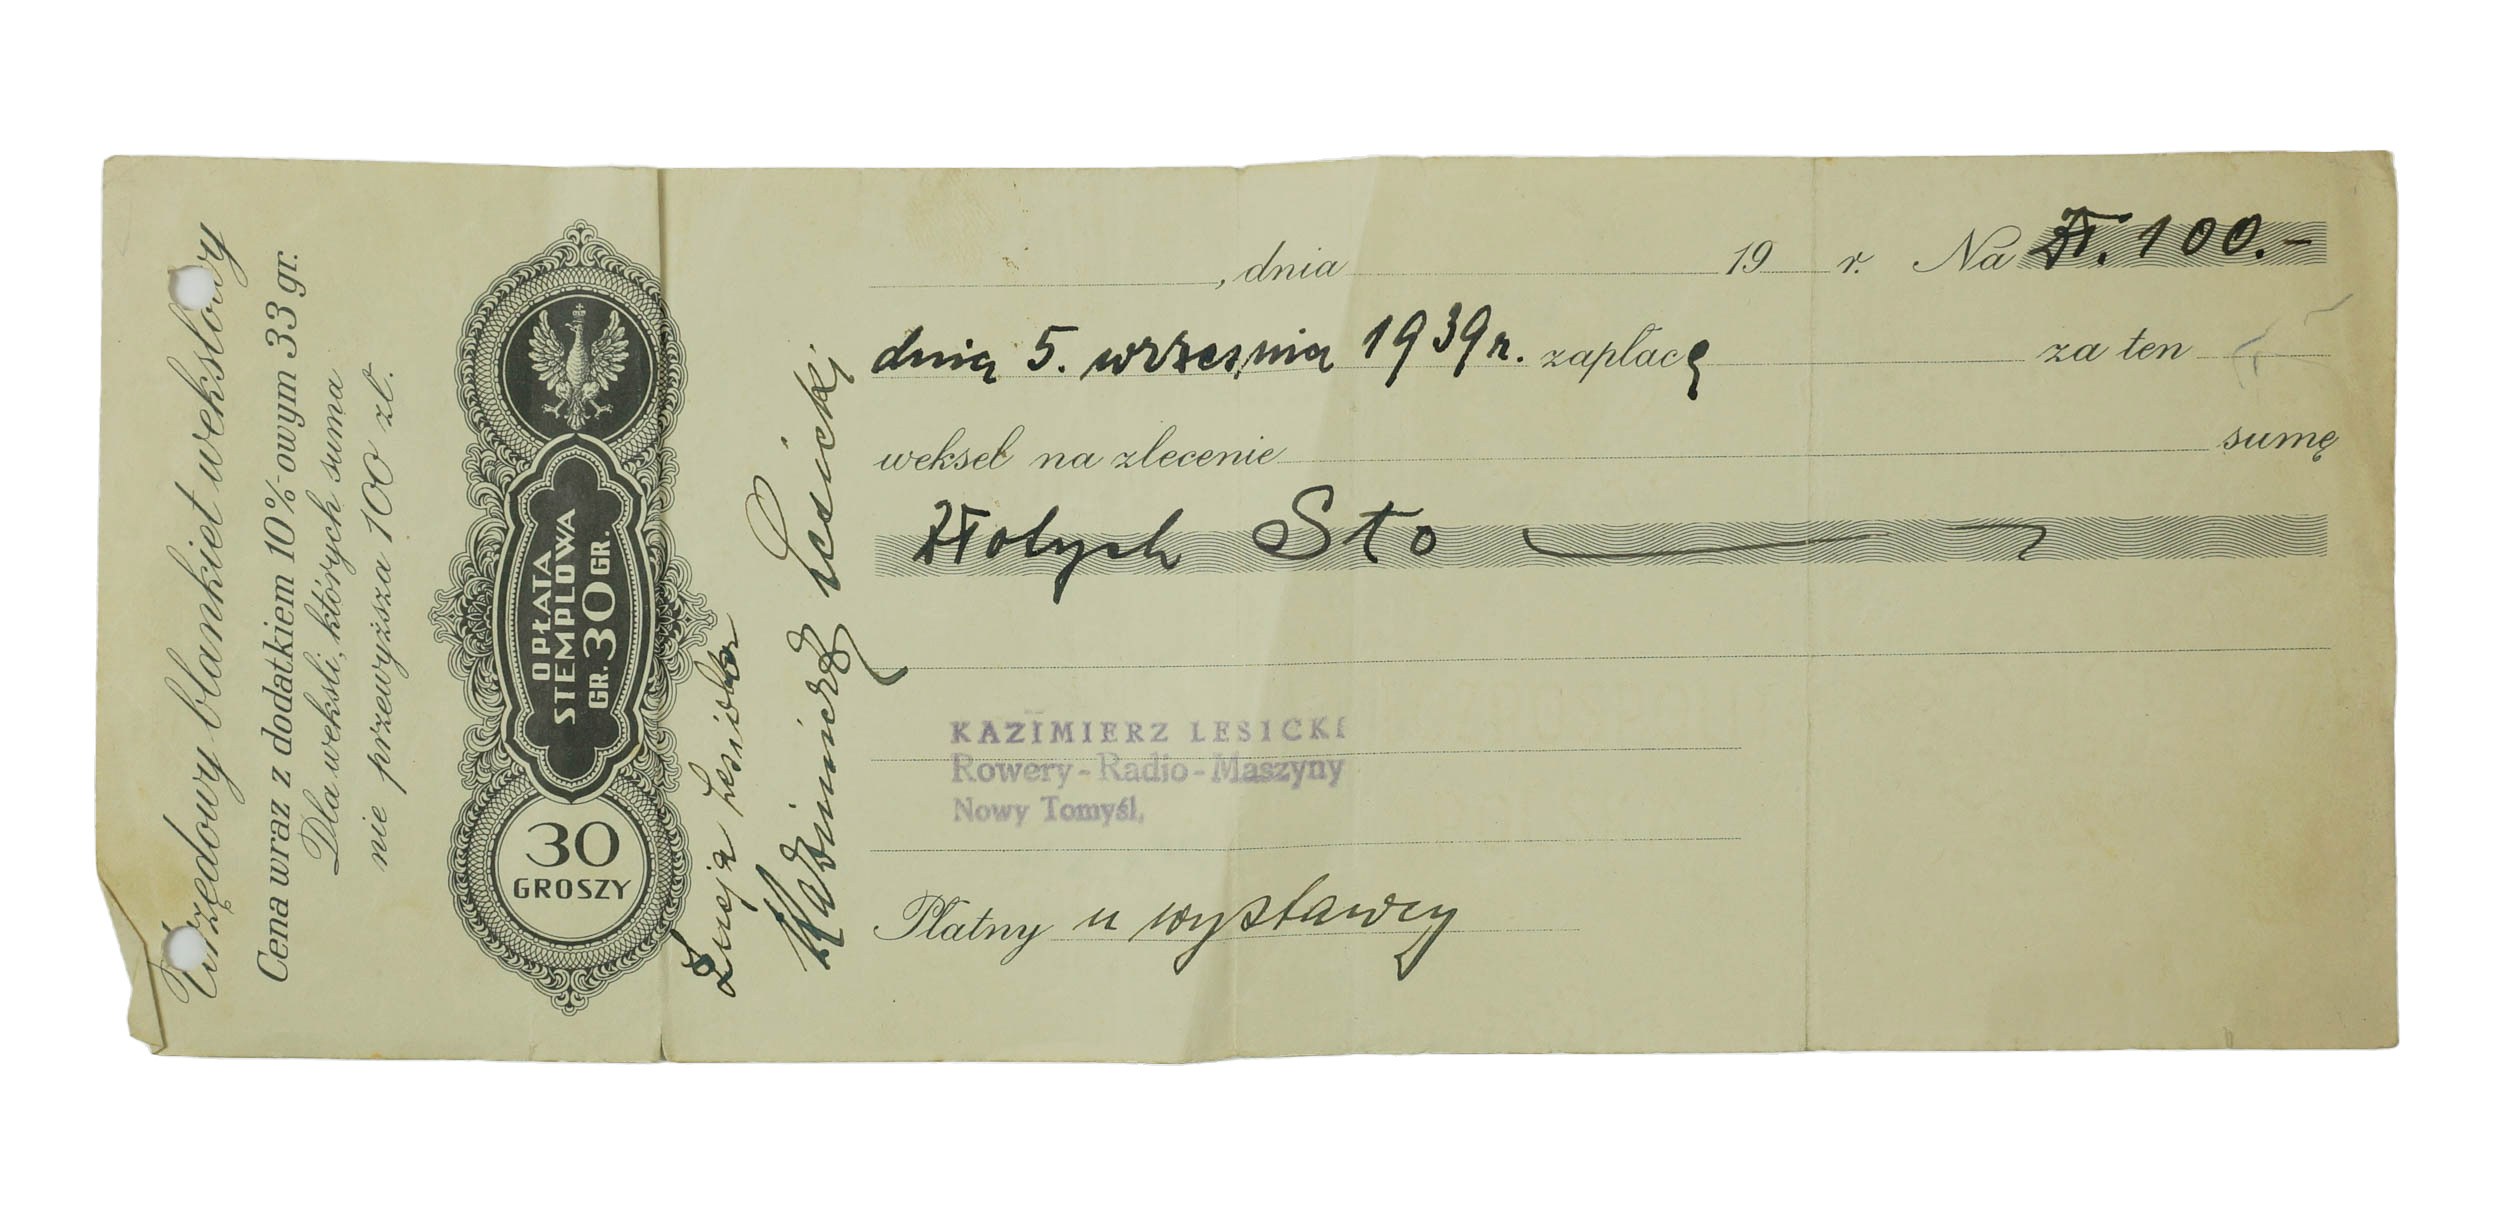 Urzędowy blankiet wekslowy
Cena wraz z dodatkiem 10%-owym 33 gr.
Dla weksli, których suma
nie przewyższa 100 zł.
OPŁATA
STEMPLOWA
GR. 30 GR.
30
GROSZY
Kazimierz Lesicki
, dnia 19 r. Na Zł. 100.-
dnia 5. września 1939 r. zapłacę za ten
weksel na zlecenie sumę
Złotych Sto
KAZIMIERZ LESICKI
Rowery - Radio - Maszyny
Nowy Tomyśl,
Płatny u wystawcy